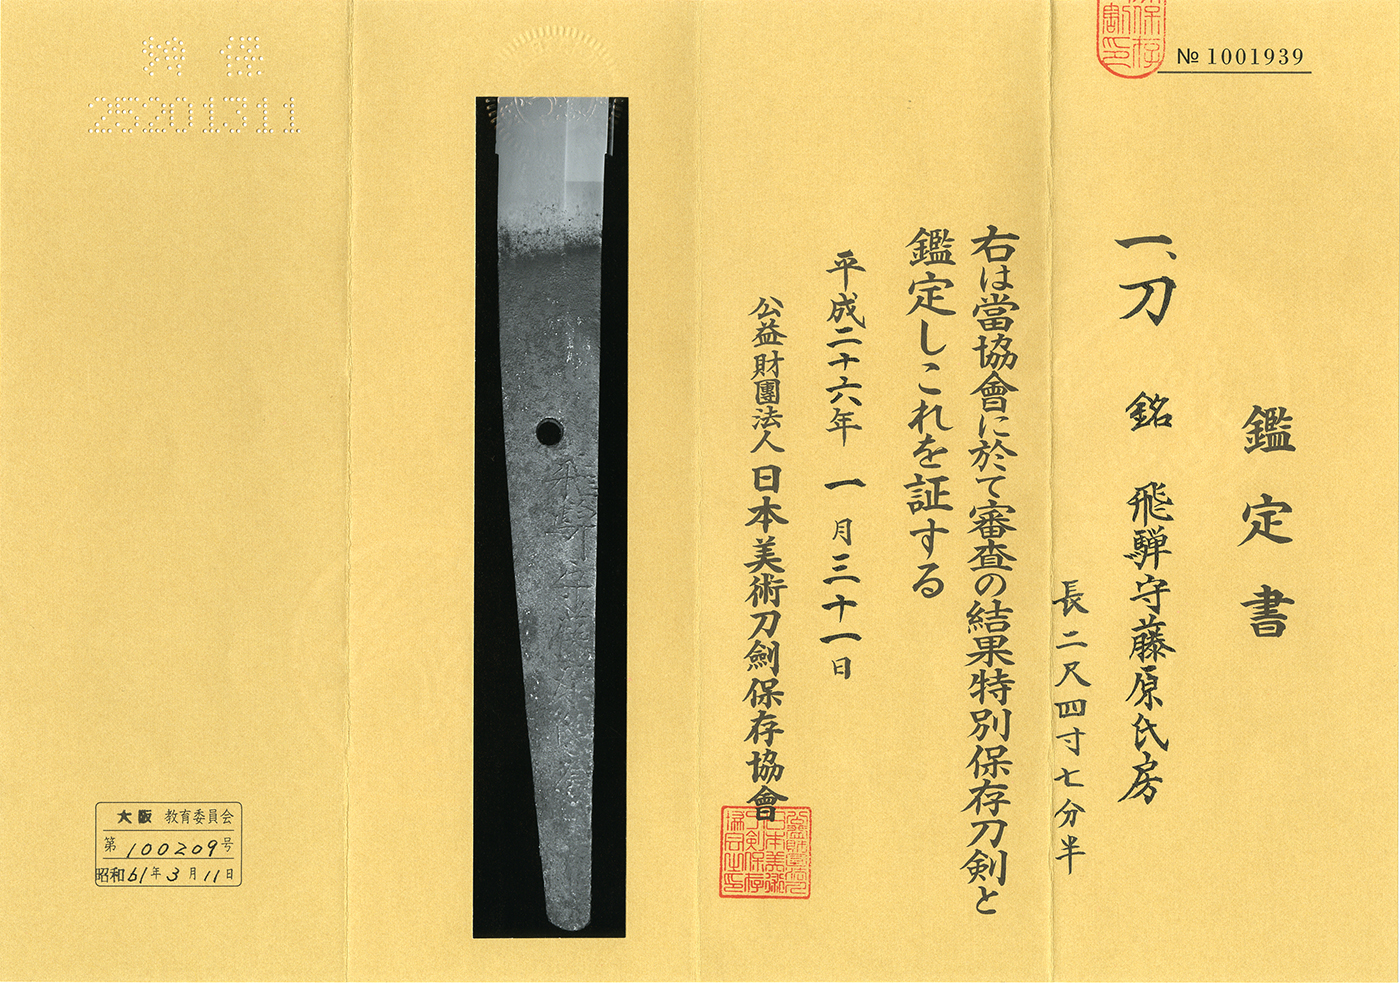 № 1001939
鑑定書
一、刀 銘 飛騨守藤原氏房
長二尺四寸七分半
右は當協會に於て審査の結果特別保存刀剣と
鑑定しこれを証する
平成二十六年 一月三十一日
公益財團法人 日本美術刀劍保存協會
特保
25201311
飛騨守藤原氏房
大阪 教育委員会
第 100209 号
昭和 61 年 3 月 11 日